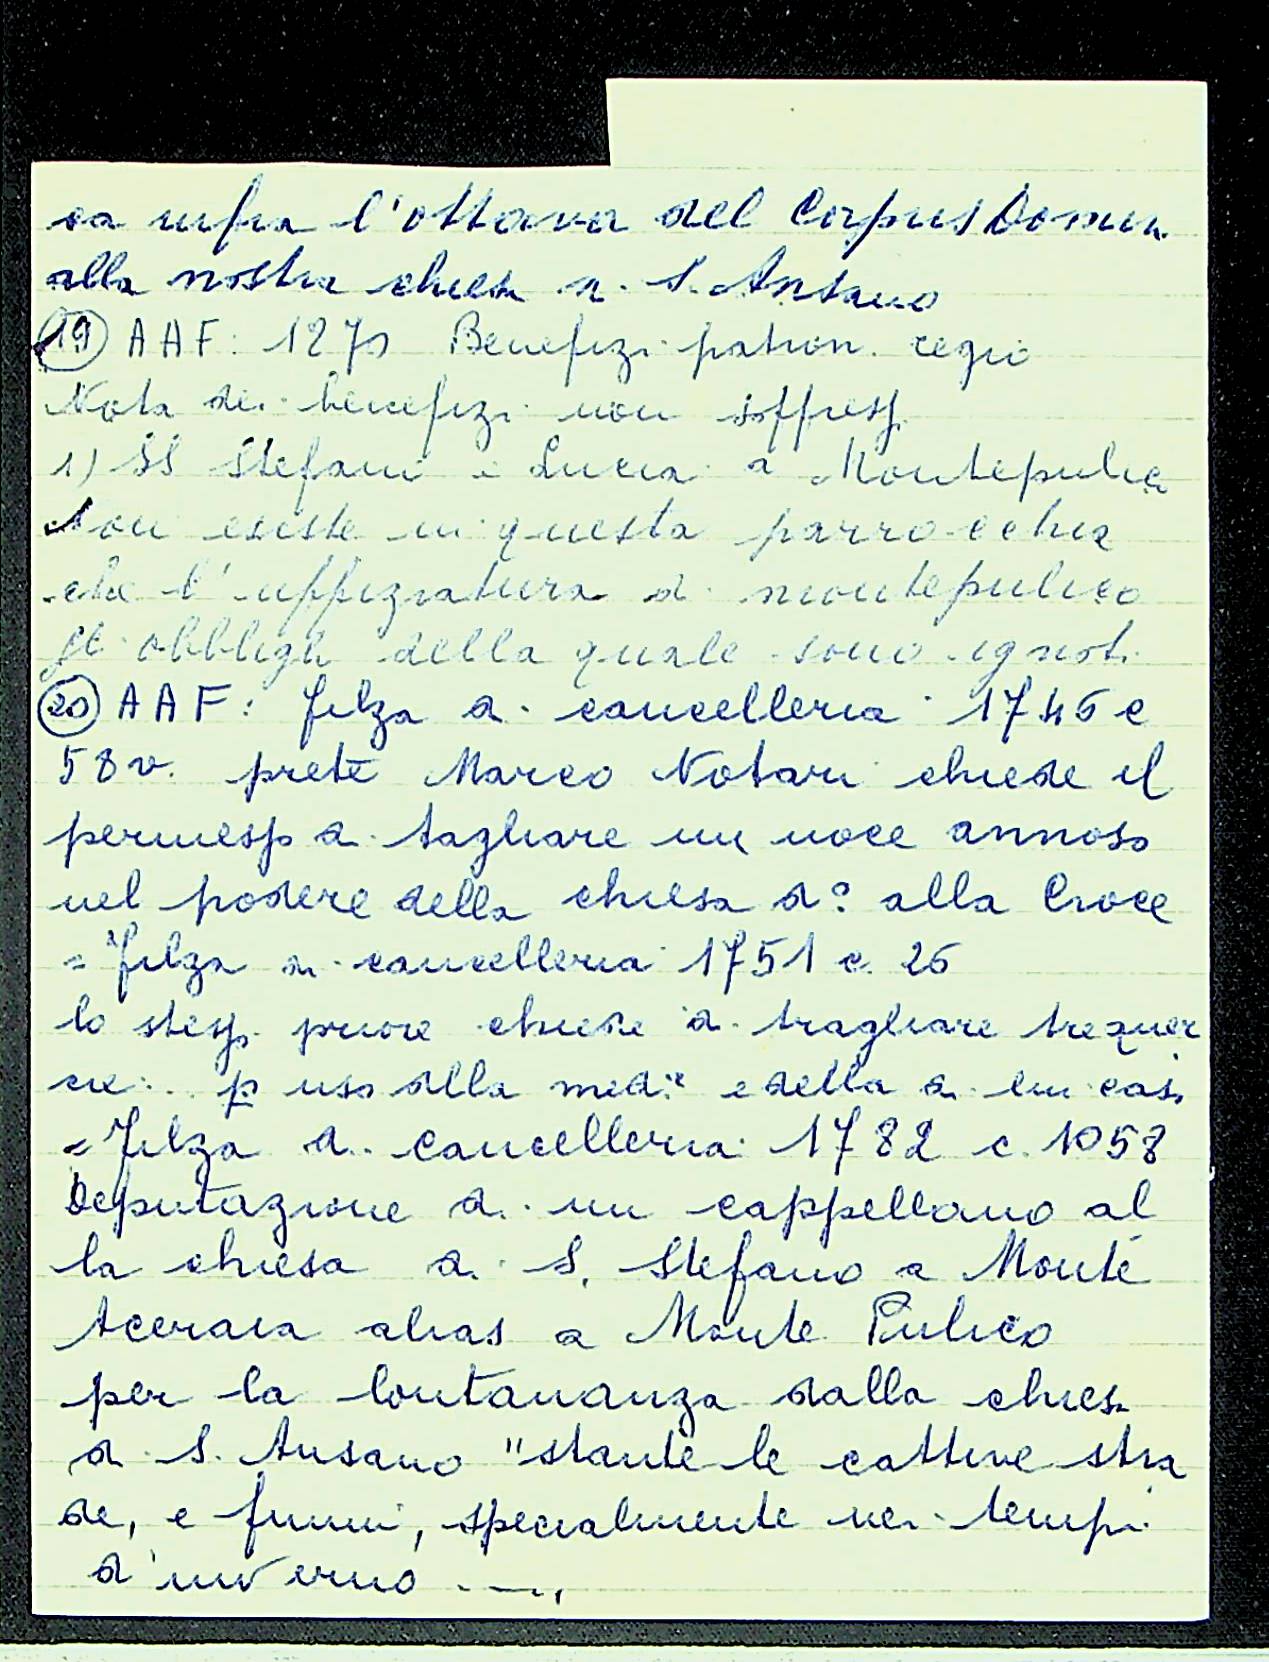 ca infra l'ottava del Corpus Domin.
alla nostra chiesa di S. Ansano
19 AAF: 1270 Benefizi patron. regio
Nota dei benefizi non soppressi
1) SS Stefano e Lucia a Montepulico
Non esiste in questa parrocchia
che l'uffiziatura di montepulico
gli obblighi della quale sono ignoti.
20 AAF: filza di cancelleria 1746 c
58v. prete Marco Notari chiede il
permesso di tagliare un noce annoso
nel podere della chiesa d° alla Croce
= filza di cancelleria 1751 c. 26
lo stesso priore chiede di tragliare tre quer
cie.. p uso della med.a e della di lui casa
= Filza di cancelleria 1782 c. 1058
Deputazione di un cappellano al
la chiesa di S. Stefano a Monte
Aceraia alias a Monte Pulico
per la lontananza dalla chiesa
di S. Ansano "stante le cattive stra
de, e fiumi, specialmente nei tempi
d'inverno ....